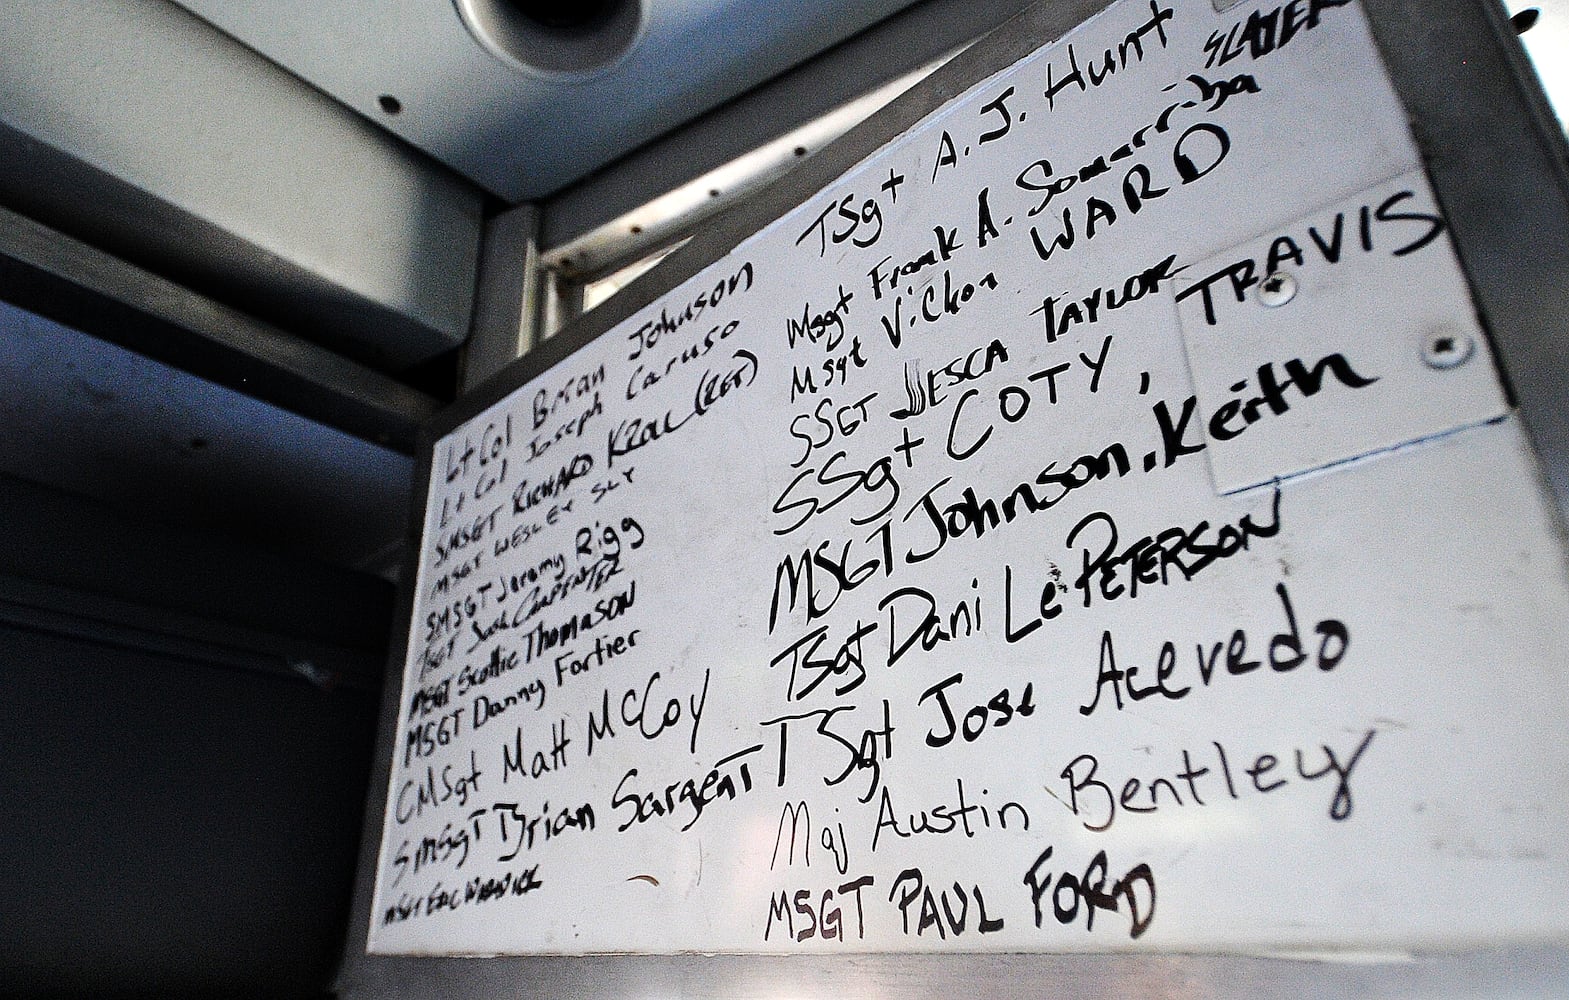 Lt Col Brian Johnson
Lt Col Joseph Caruso
SMSGT RICHARD KROL (RET)
MSGT WESLEY SLY
SMSGT Jeremy Rigg
TSGT Josh CARPENTER
MSGT Scottie Thomason
MSGT Danny Fortier
CMSgt Matt McCoy
SMSgT Brian SargenT
MSGT ERIC
SLATER
TSgt A.J. Hunt
Msgt Frank A. Somarriba
Msgt WARD
SSGT JESCA TAYLOR
SSgt COTY, TRAVIS
MSGT Johnson, Keith
TSgt Dani Le PETERSON
TSgt Jose Acevedo
Maj Austin Bentley
MSGT PAUL FORD